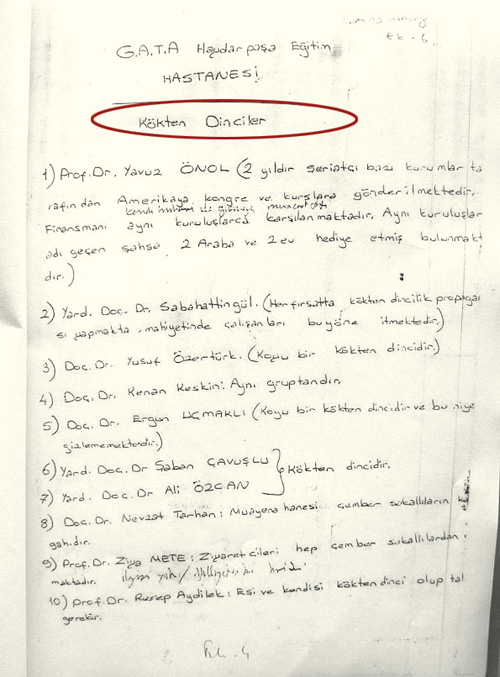 Ek-6.
G.A.T.A Haydarpaşa Eğitim
HASTANESİ
Kökten Dinciler
1) Prof. Dr. Yavuz ÖNOL (2 yıldır şeriatçı bazı kurumlar ta
rafından Amerikaya kongre ve kurslara gönderilmektedir.
Finansmanı aynı kuruluşlarca karşılanmaktadır. Aynı kuruluşlar
adı geçen şahsa 2 Araba ve 2 ev hediye etmiş bulunmakt
dır.)
2) Yard. Doç. Dr. Sabahattin gül. (Her fırsatta kökten dincilik propagan
sı yapmakta, mahiyetinde çalışanları bu yöne itmektedir.)
3) Doç. Dr. Yusuf Özertürk. (Koyu bir kökten dincidir.)
4) Doç. Dr. Kenan Keskin: Aynı gruptandır.
5) Doç. Dr. Ergun UÇMAKLI (Koyu bir kökten dincidir ve bu
gizlememektedir.)
6) Yard. Doç. Dr Şaban ÇAVUŞLU
7) Yard. Doç. Dr Ali ÖZCAN
Kökten dincidir.
8) Doç. Dr. Nevzat Tarhan: Muayenehanesi çember sakallıların
gahıdır.
9) Prof. Dr. Ziya METE: Ziyaretcileri hep çember sakallılardan
maktadır.
10) Prof. Dr. Recep Aydilek: Eşi ve kendisi kökten dinci olup
gerekir.